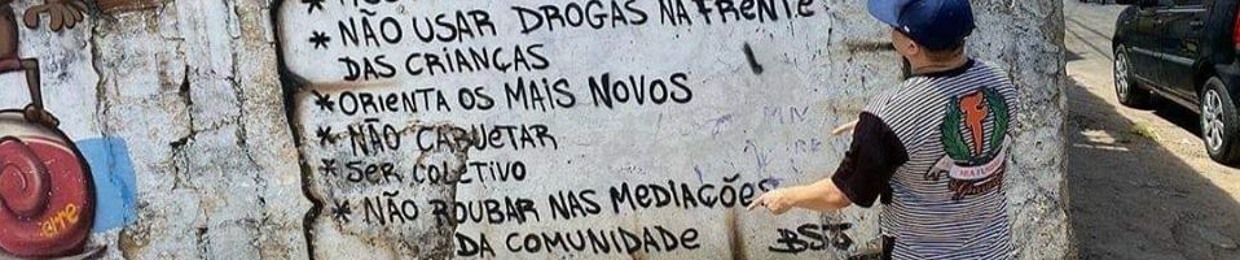 * NÃO USAR DROGAS NA FRENTE
DAS CRIANÇAS
* ORIENTA OS MAIS NOVOS
* NÃO CABUETAR
* SER COLETIVO
* NÃO ROUBAR NAS MEDIAÇÕES
DA COMUNIDADE